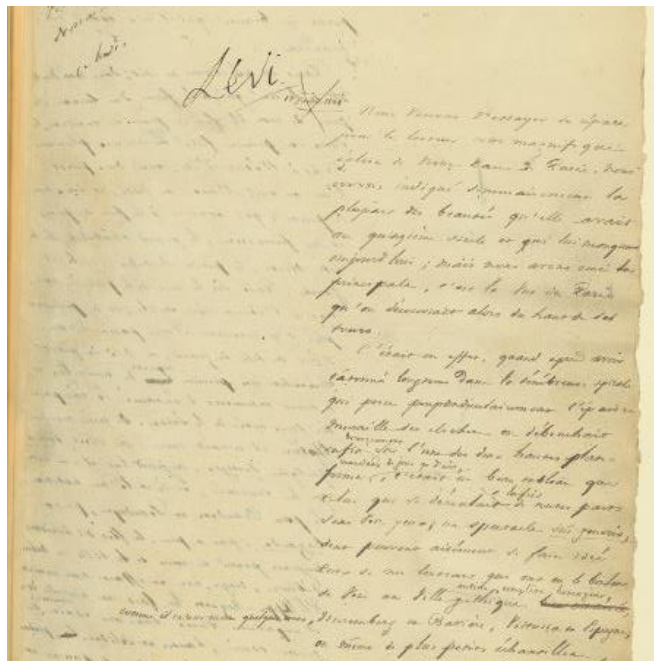 Levi.
Nous venons d'essayer de répar
pour le lecteur cette magnifique
église de Notre-Dame de Paris. nous
avons indiqué sommairement la
plupart des beautés qu'elle avait
au quinzième siècle et qui lui manquent
aujourd'hui ; mais nous avons omis la
principale, c'est la vue du Paris
qu'on découvrait alors du haut de ses
tours.
C'était en effet, quand après avoir
tâtonné longtemps dans la ténébreuse spirale
qui perce perpendiculairement l'épaisse
muraille des clochers, on débouchait
enfin sur l'une des deux hautes plates-
inondées de jour et d'air,
formes, c'était un beau tableau que
celui qui se déroulait de toutes parts
sous vos yeux ; un spectacle sui generis,
dont peuvent aisément se faire idée
ceux de nos lecteurs qui ont eu le bonheur
entière, complète, homogène,
de voir une ville gothique
comme il en reste encore quelques-unes, Nuremberg en Bavière, Vittoria en Espagne,
ou même de plus petits échantillons